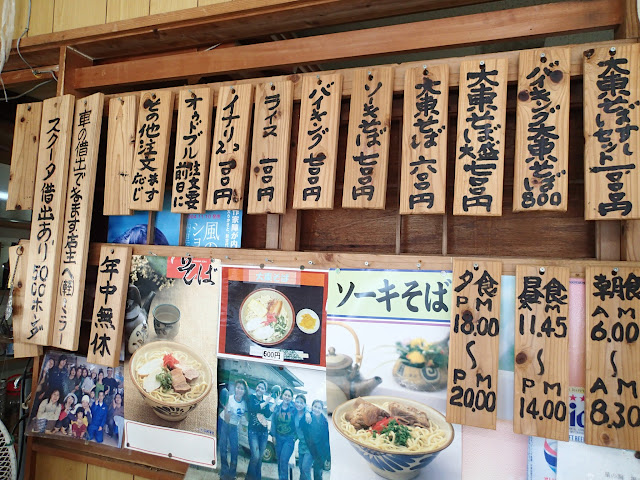 大東そばすしセット
バーキング大東そば800
大東そば大盛七〇〇円
大東そば六〇〇円
ソーキそば七〇〇円
バイキング七〇〇円
ライス一〇〇円
イナリ
オードブル注文前日に
その他注文応じます
車の借出できます店主へ(軽)ミラー
スクータ借出あり50ccホンダ
年中無休
朝食
AM
6.00
〜
AM
8.30
昼食
AM
11.45
〜
PM
14.00
夕食
PM
18.00
〜
PM
20.00
ソーキそば
500円
そば